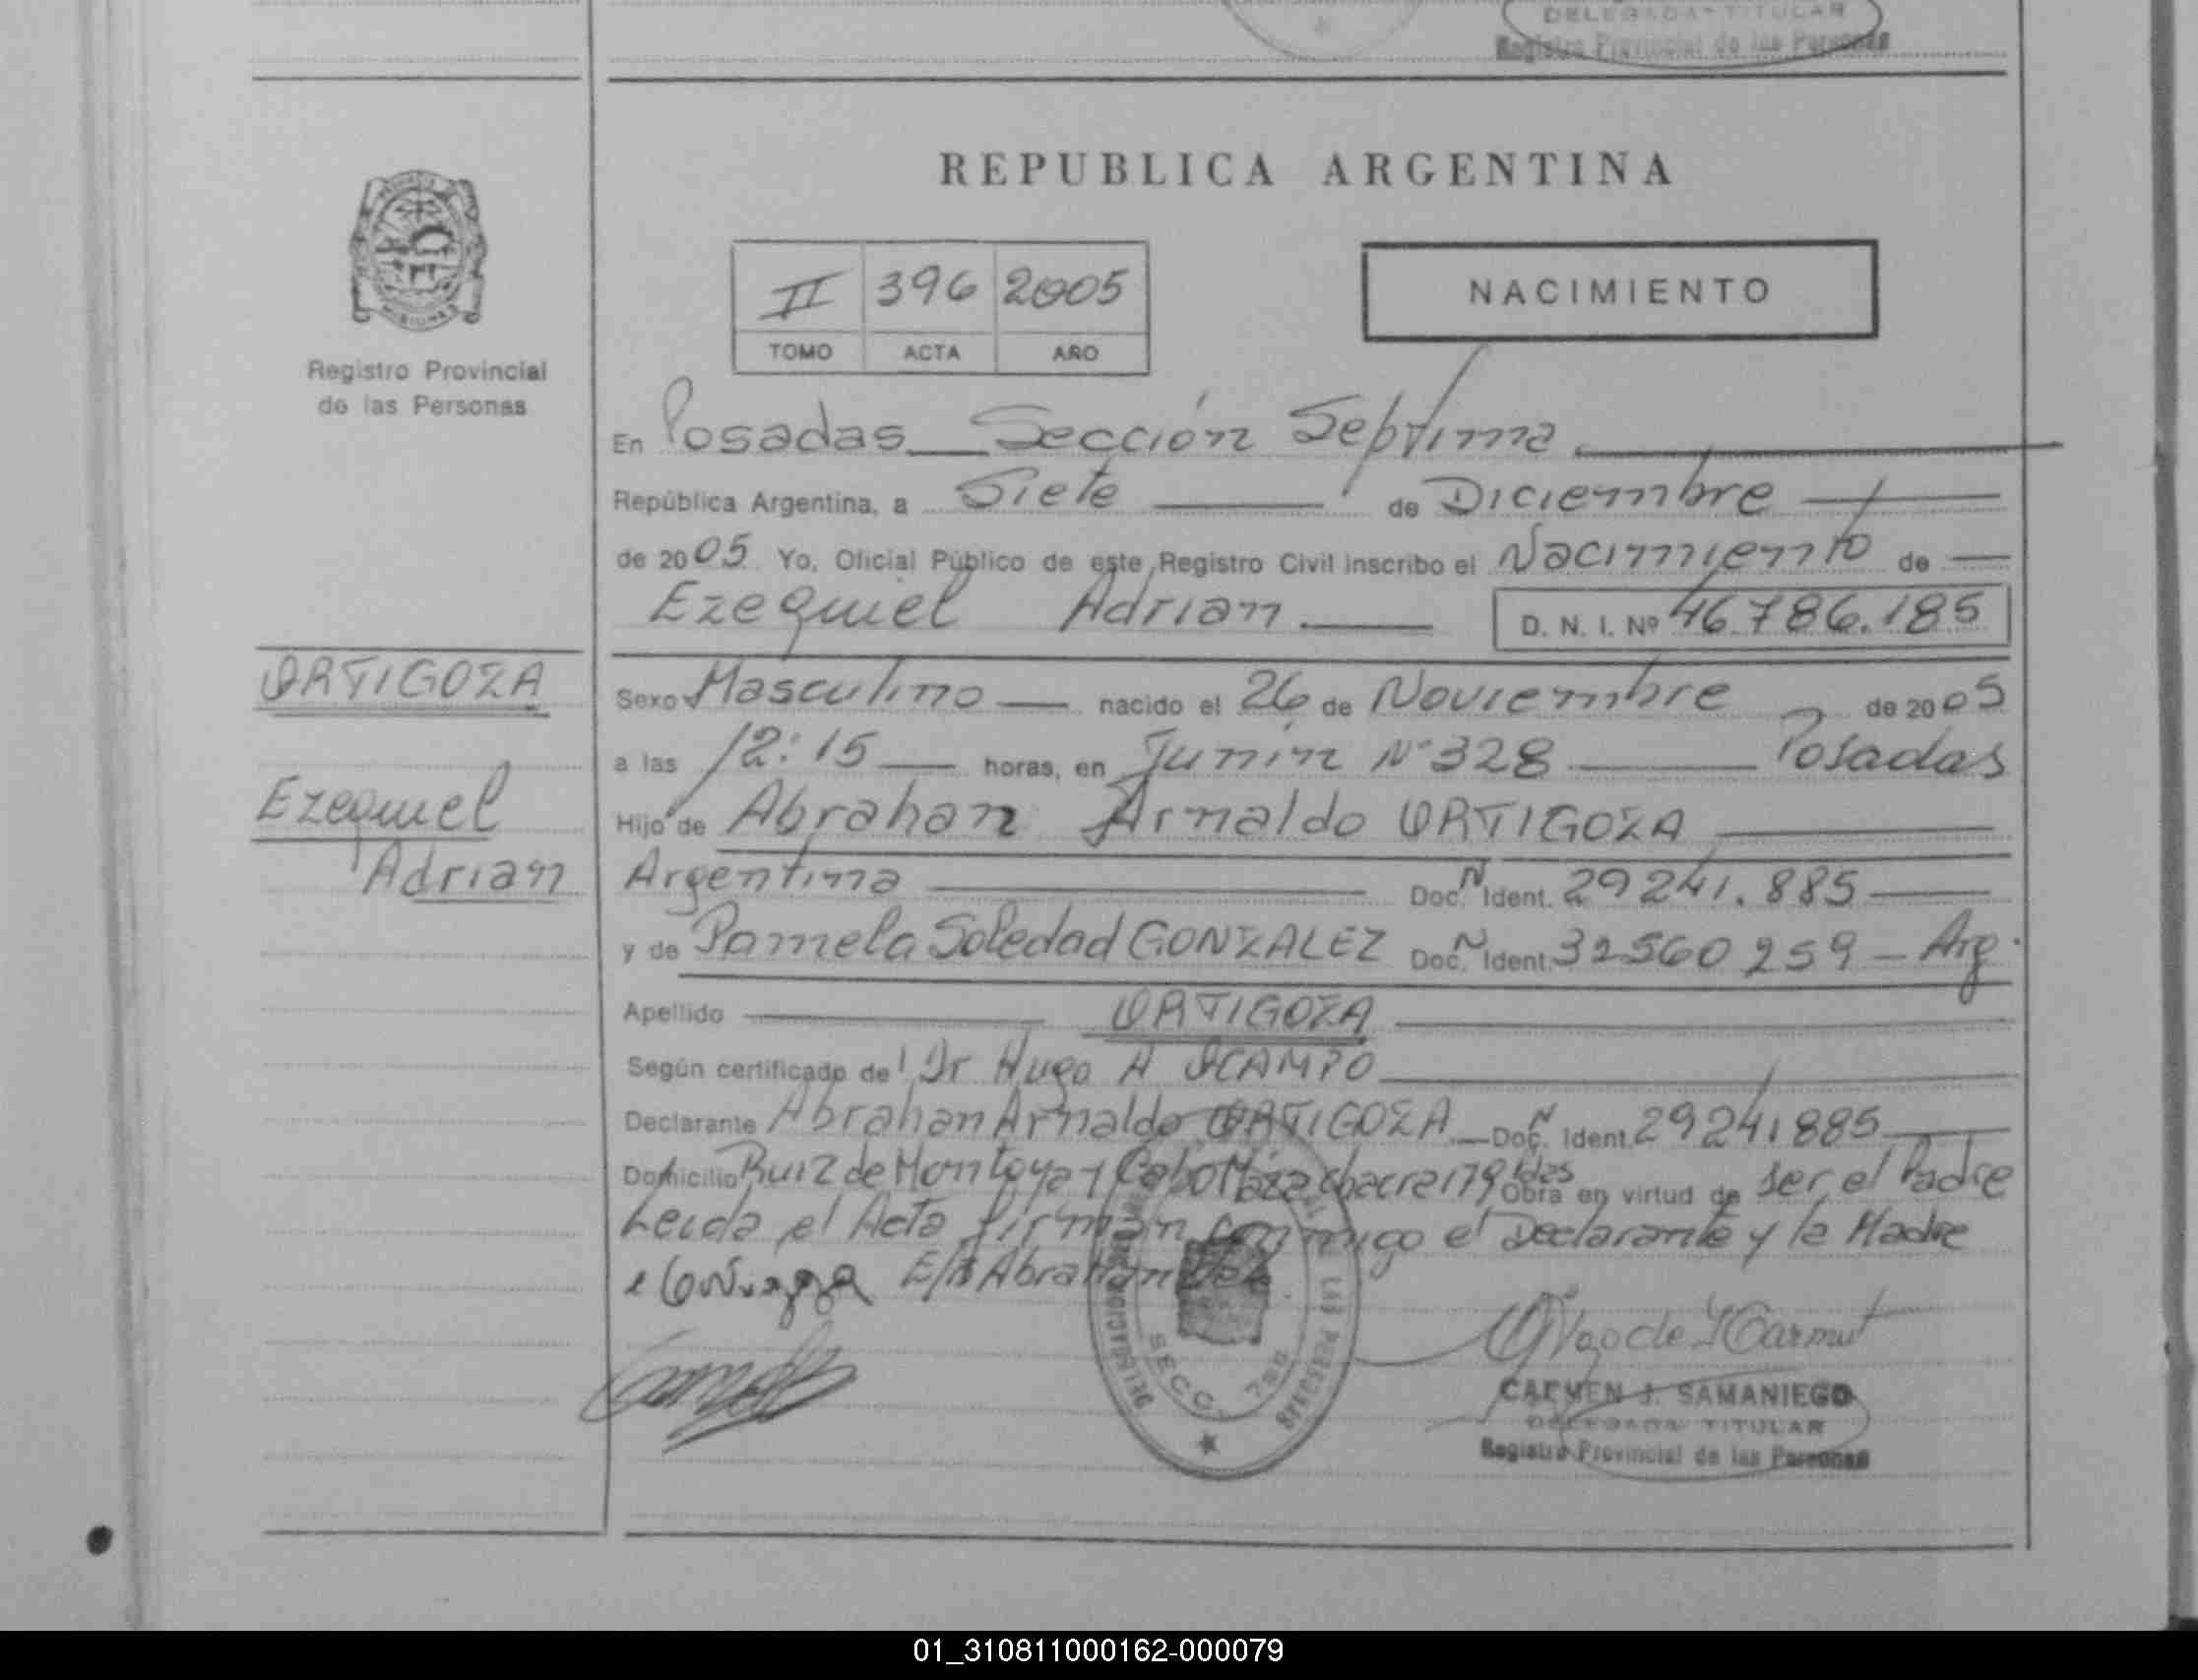 DELEGADA TITULAR
Registro Provincial de las Personas
REPUBLICA ARGENTINA
II 396 2005
TOMO ACTA AÑO
NACIMIENTO
MISIONES
Registro Provincial
de las Personas
En Posadas Sección Septima
República Argentina, a Siete de Diciembre
de 2005 Yo, Oficial Público de este Registro Civil inscribo el Nacimiento de
Ezequiel Adrian D. N. I. Nº 46.786.185
ORTIGOZA
Ezequiel
Adrian
Sexo Masculino nacido el 26 de Noviembre de 2005
a las 12:15 horas, en Junín Nº 328 Posadas
Hijo de Abrahan Arnaldo ORTIGOZA
Argentina Doc. N Ident. 29241.885
y de Pamela Soledad GONZALEZ Doc. N Ident. 32560259 - Arg.
Apellido ORTIGOZA
Según certificado del Dr Hugo A OCAMPO
Declarante Abrahan Arnaldo ORTIGOZA Doc. N Ident. 29241885
Domicilio Ruiz de Montoya y Cabo chacra 179 Pdas Obra en virtud de ser el Padre
Leida el Acta firman conmigo el Declarante y la Madre
E/R Abrahan
CARMEN J. SAMANIEGO
DELEGADA TITULAR
Registro Provincial de las Personas
DELEGACION
SECC. 7ma
LAS PERSONAS
01_310811000162-000079